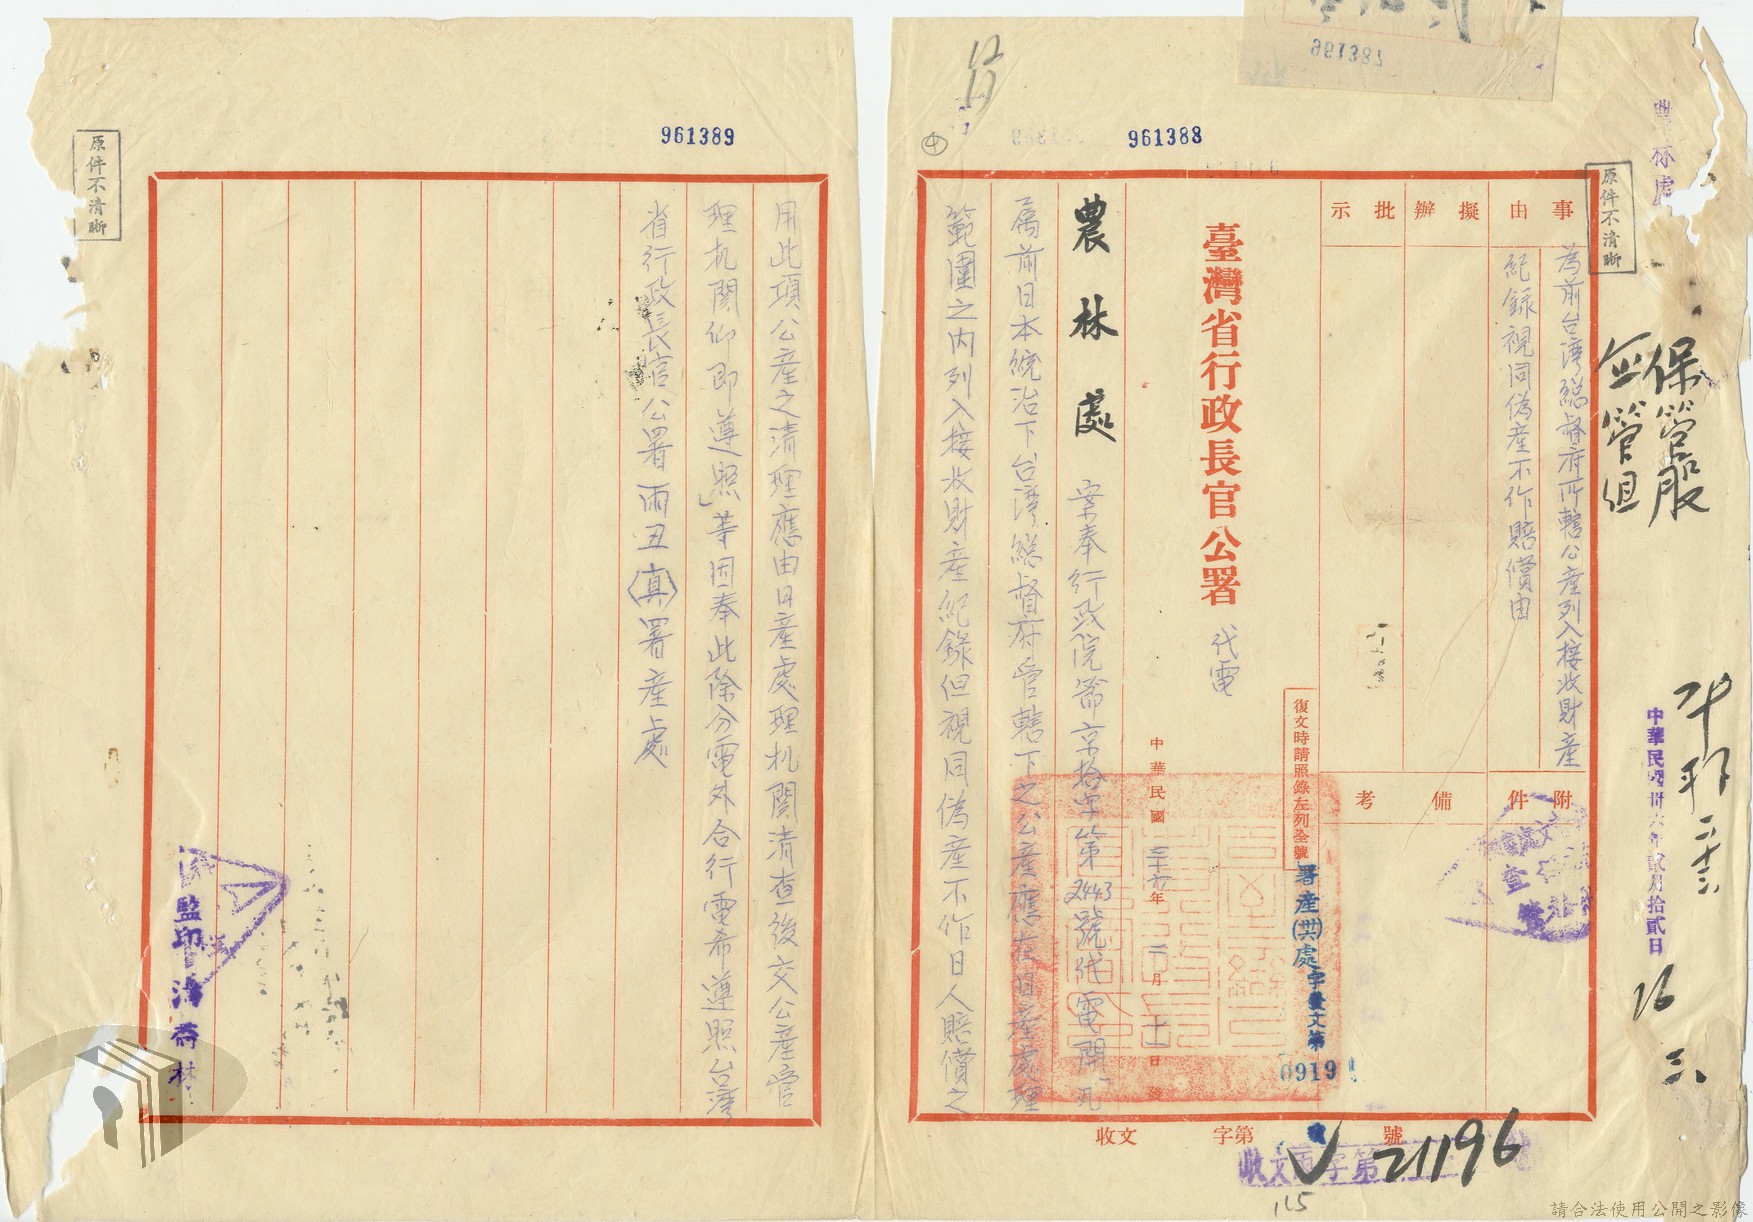 961388
961389
961387
原件不清晰
事由
擬辦
批示
為前台湾総督府所轄公產列入接收財產
紀録視同偽產不作賠償由
附件
備考
臺灣省行政長官公署
代電
復文時請照錄左列全號
署產(卅六)處字發文第
0919
號
中華民國三十六年二月十一日發
農林處
案奉行政院節京拾字第2443號代電開「凡
屬前日本統治下台湾総督府管轄下之公產應在日產處理
範圍之内列入接收財產紀錄但視同偽產不作日人賠償之
用此項公產之清理應由日產處理机関清查後交公產管
理机関仰即遵照」等因奉此除分電外合行電希遵照台灣
省行政長官公署雨丑〈真〉署產處
收文
字第
號
21196
115
保管股
企管組
中華民國卅六年貳月拾貳日
16
三
監印
原件不清晰
請合法使用公開之影像